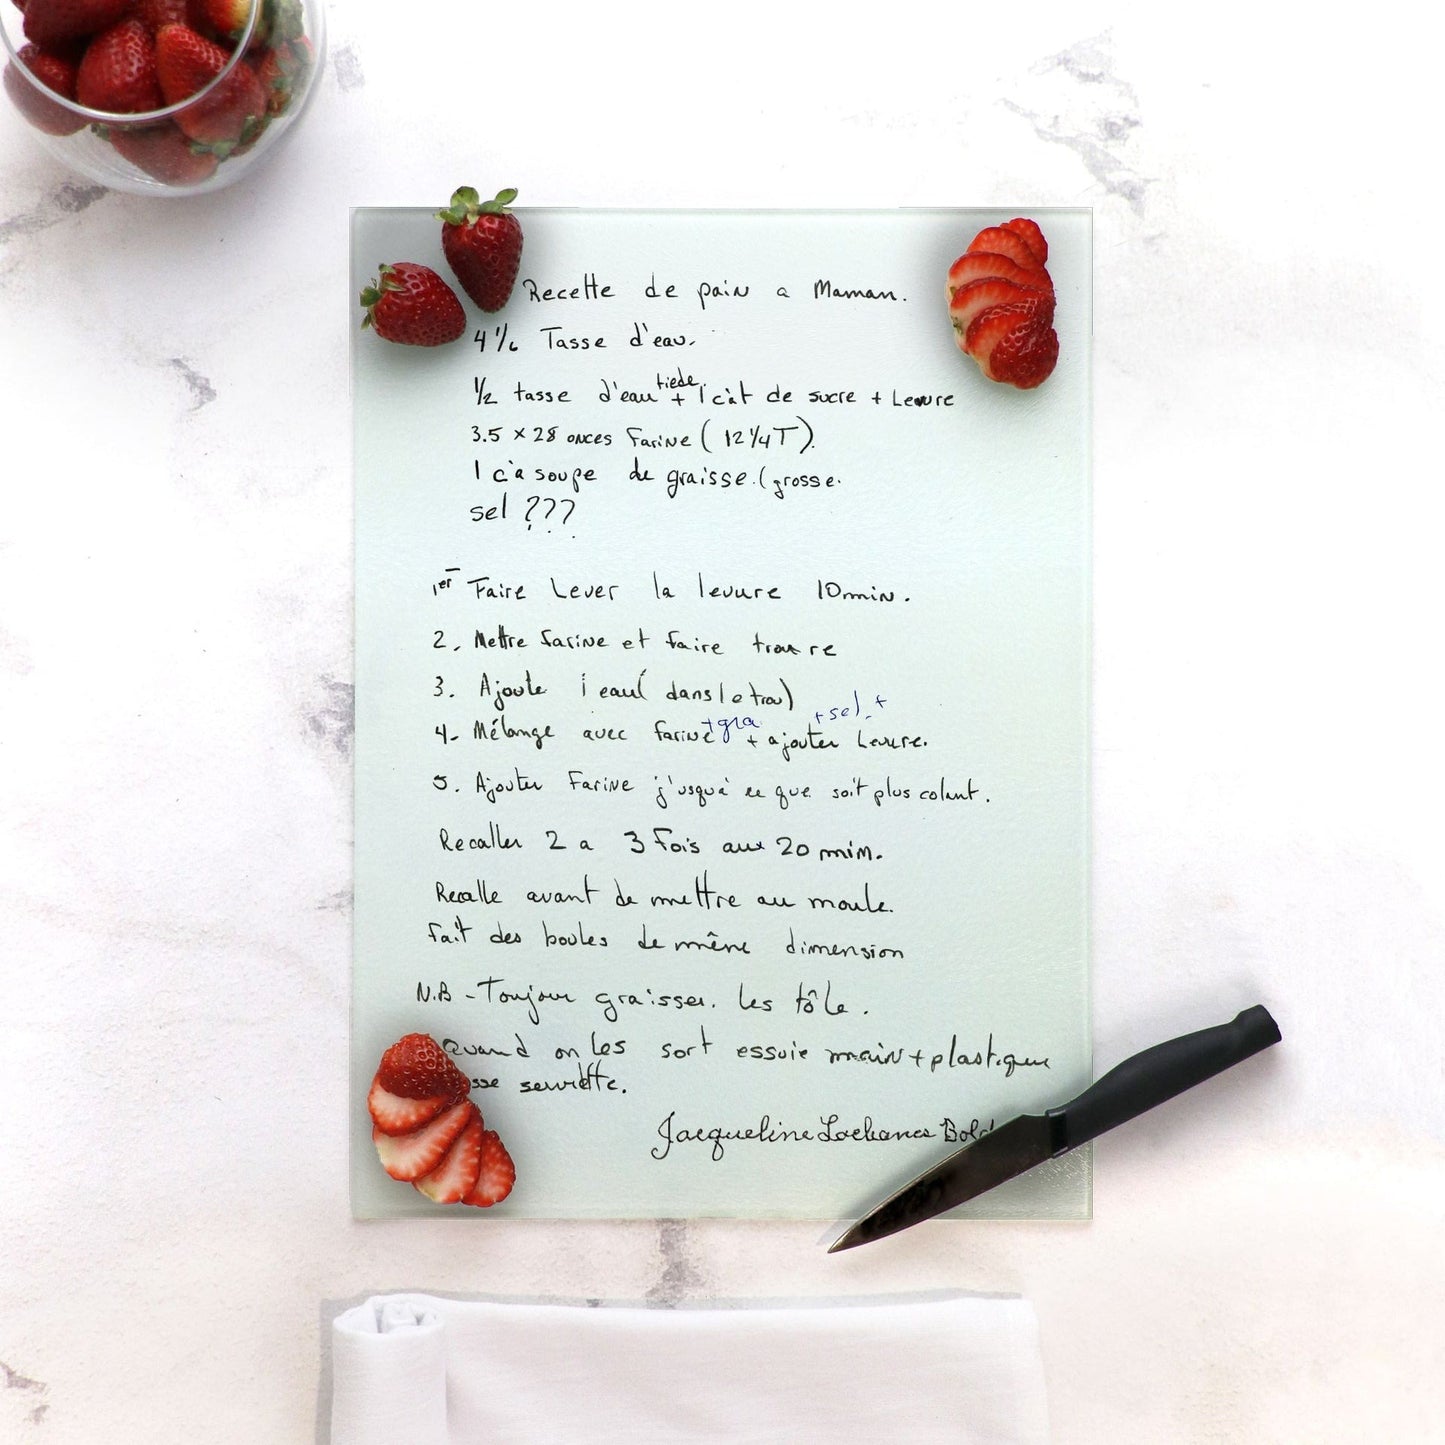 Recette de pain a Maman.
4 1/2 Tasse d'eau.
1/2 tasse d'eau tiède + 1 c'at de sucre + Levure
3.5 x 28 onces Farine ( 12 1/4 T).
1 c'a soupe de graisse. (grosse.
sel ???
1er Faire Lever la levure 10 min.
2. Mettre farine et faire
3. Ajoute l'eau (dans le trou)
+ sel +
4- Mélange avec farine + gra + ajouter Levure.
5. Ajouter Farine j'usqu'à ce que soit plus colant.
Recaller 2 a 3 Fois aux 20 min.
Recalle avant de mettre au moule.
Fait des boules de même dimension
N.B - Toujour graisser. les tôle.
Quand on les sort essuie main + plastique
sse serviette.
Jacqueline Lachance